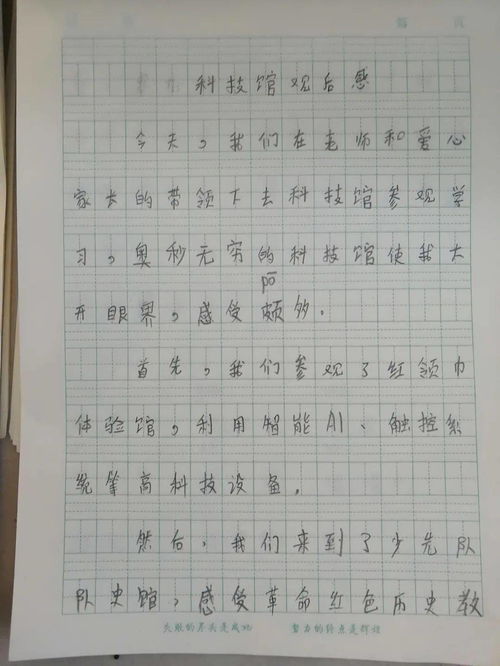 第 页
科技馆观后感
今天，我们在老师和爱心
家长的带领下去科技馆参观学
习，奥秒无穷的科技馆使我大
pō
开眼界，感受颇多。
首先，我们参观了红领巾
体验馆，利用智能AI、触控系
统等高科技设备。
然后，我们来到了少先队
队史馆，感受革命红色历史教
失败的尽头是成功 努力的终点是辉煌